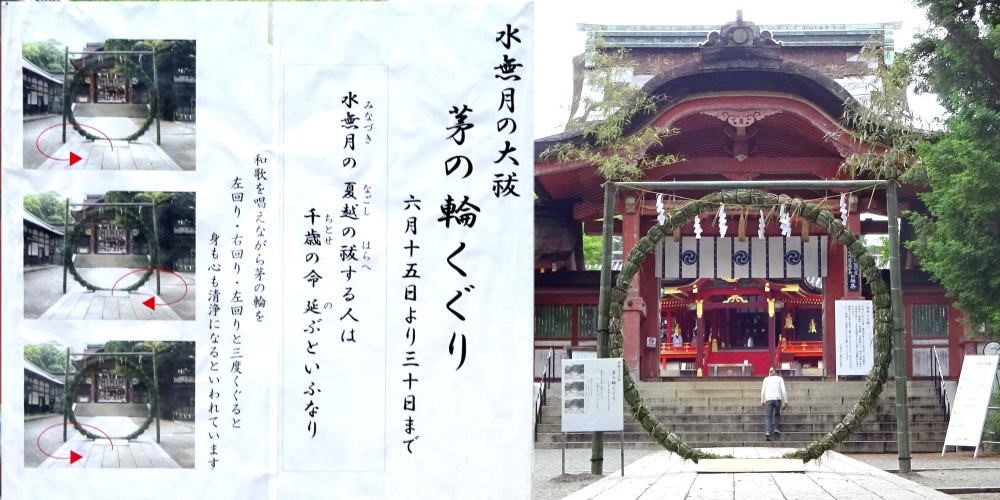 水無月の大祓
茅の輪くぐり
六月十五日より三十日まで
水無月の 夏越の祓する人は
みなづき なごし はらへ
千歳の命 延ぶといふなり
ちとせ の
和歌を唱えながら茅の輪を
左回り・右回り・左回りと三度くぐると
身も心も清浄になるといわれています